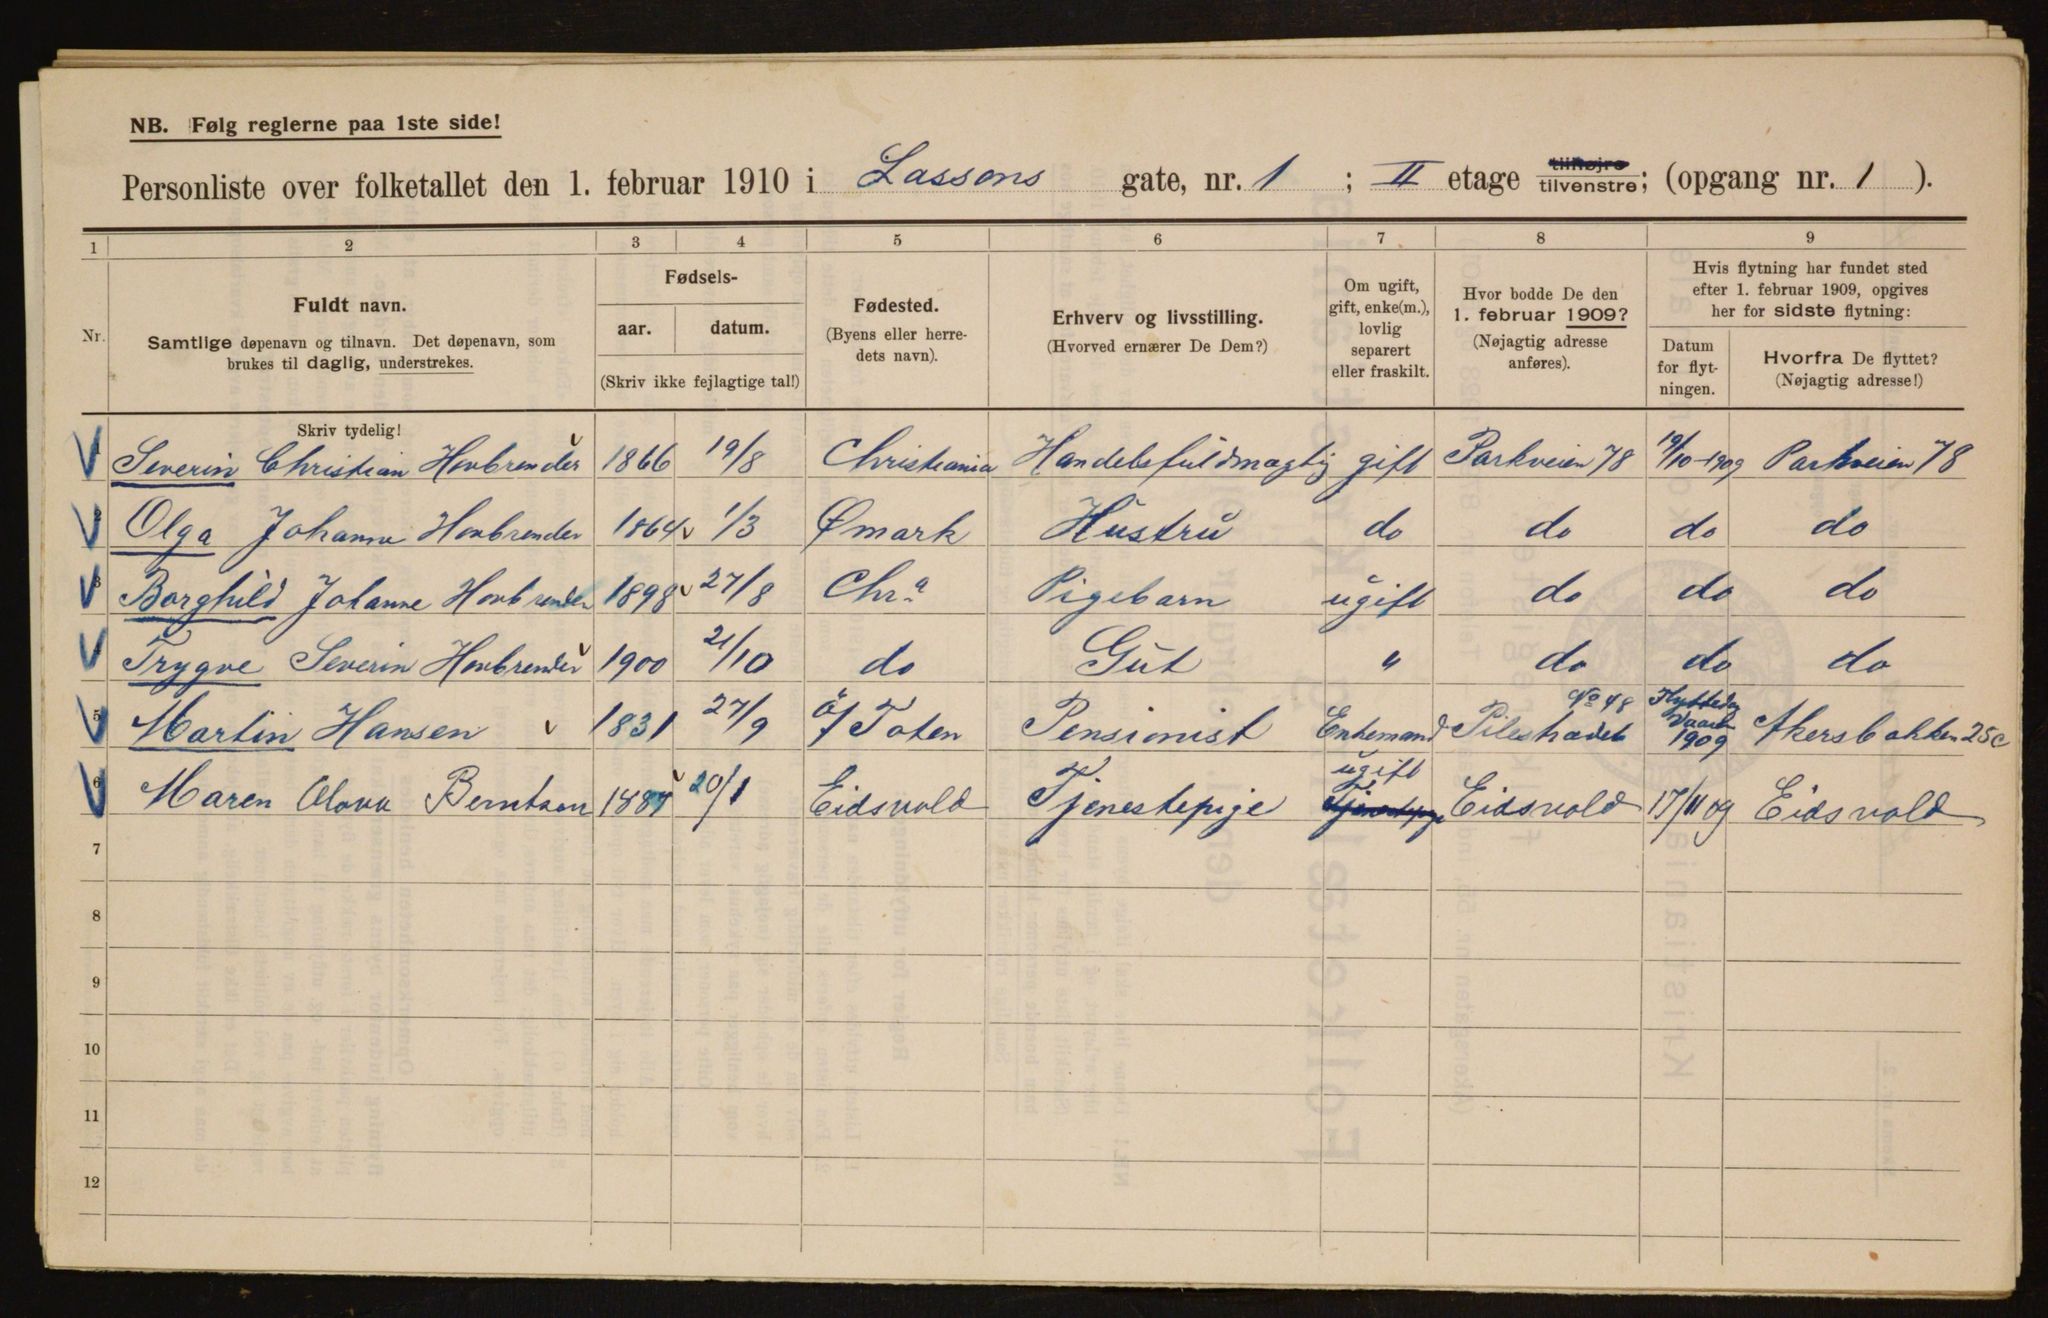 NB. Følg reglerne paa 1ste side!
Personliste over folketallet den 1. februar 1910 i Lassons gate, nr. 1 ; II etage tilhøjre tilvenstre; (opgang nr. 1 ).
1 2 3 4 5 6 7 8 9
Nr. Fuldt navn. Samtlige døpenavn og tilnavn. Det døpenavn, som brukes til daglig, understrekes.
Fødsels- aar. datum. (Skriv ikke fejlagtige tal!)
Fødested. (Byens eller herredets navn).
Erhverv og livsstilling. (Hvorved ernærer De Dem?)
Om ugift, gift, enke(m.), lovlig separert eller fraskilt.
Hvor bodde De den 1. februar 1909? (Nøjagtig adresse anføres).
Hvis flytning har fundet sted efter 1. februar 1909, opgives her for sidste flytning:
Datum for flytningen. Hvorfra De flyttet? (Nøjagtig adresse!)
Skriv tydelig!
Severin Christian Hovbrender 1866 19/8 Christiania Handelsfuldmægtig gift Parkveien 78 19/10-1909 Parkveien 78
2 Olga Johanne Hovbrender 1864 1/3 Ømark Hustru do do do do
3 Borghild Johanne Hovbrender 1898 27/8 Chr.a Pigebarn ugift do do do
Trygve Severin Hovbrender 1900 21/10 do Gut " do do do
5 Martin Hansen 1831 27/9 Ø/Toten Pensionist Enkemand Pilestrædet No 48 Flyttedag Vaaren 1909 Akersbakken 25c
6 Maren Berntsen 20/1 Eidsvold Tjenestepige ugift Eidsvold 17/11 09 Eidsvold
7
8
9
10
11
12